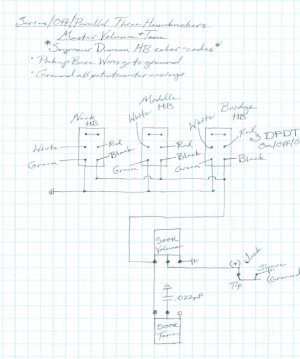 Series/Off/Parallel Three Humbuckers
Master Volume + Tone
*Seymour Duncan HB color-codes*
• Pickup Bare Wires go to ground
• Ground all potentiometer casings
Neck
HB
Middle
HB
Bridge
HB
White
Green
Red
Black
White
Green
Red
Black
White
Green
Red
Black
3 DPDT
On/Off/On
500K
Volume
.022µF
500K
Tone
Jack
Tip
Sleeve
(Ground)